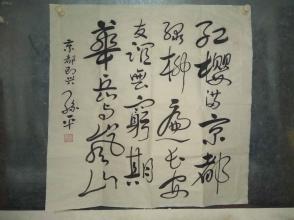 红樱满京都
绿柳遍长安
友谊无穷期
华岳与岚山
京都即兴
平